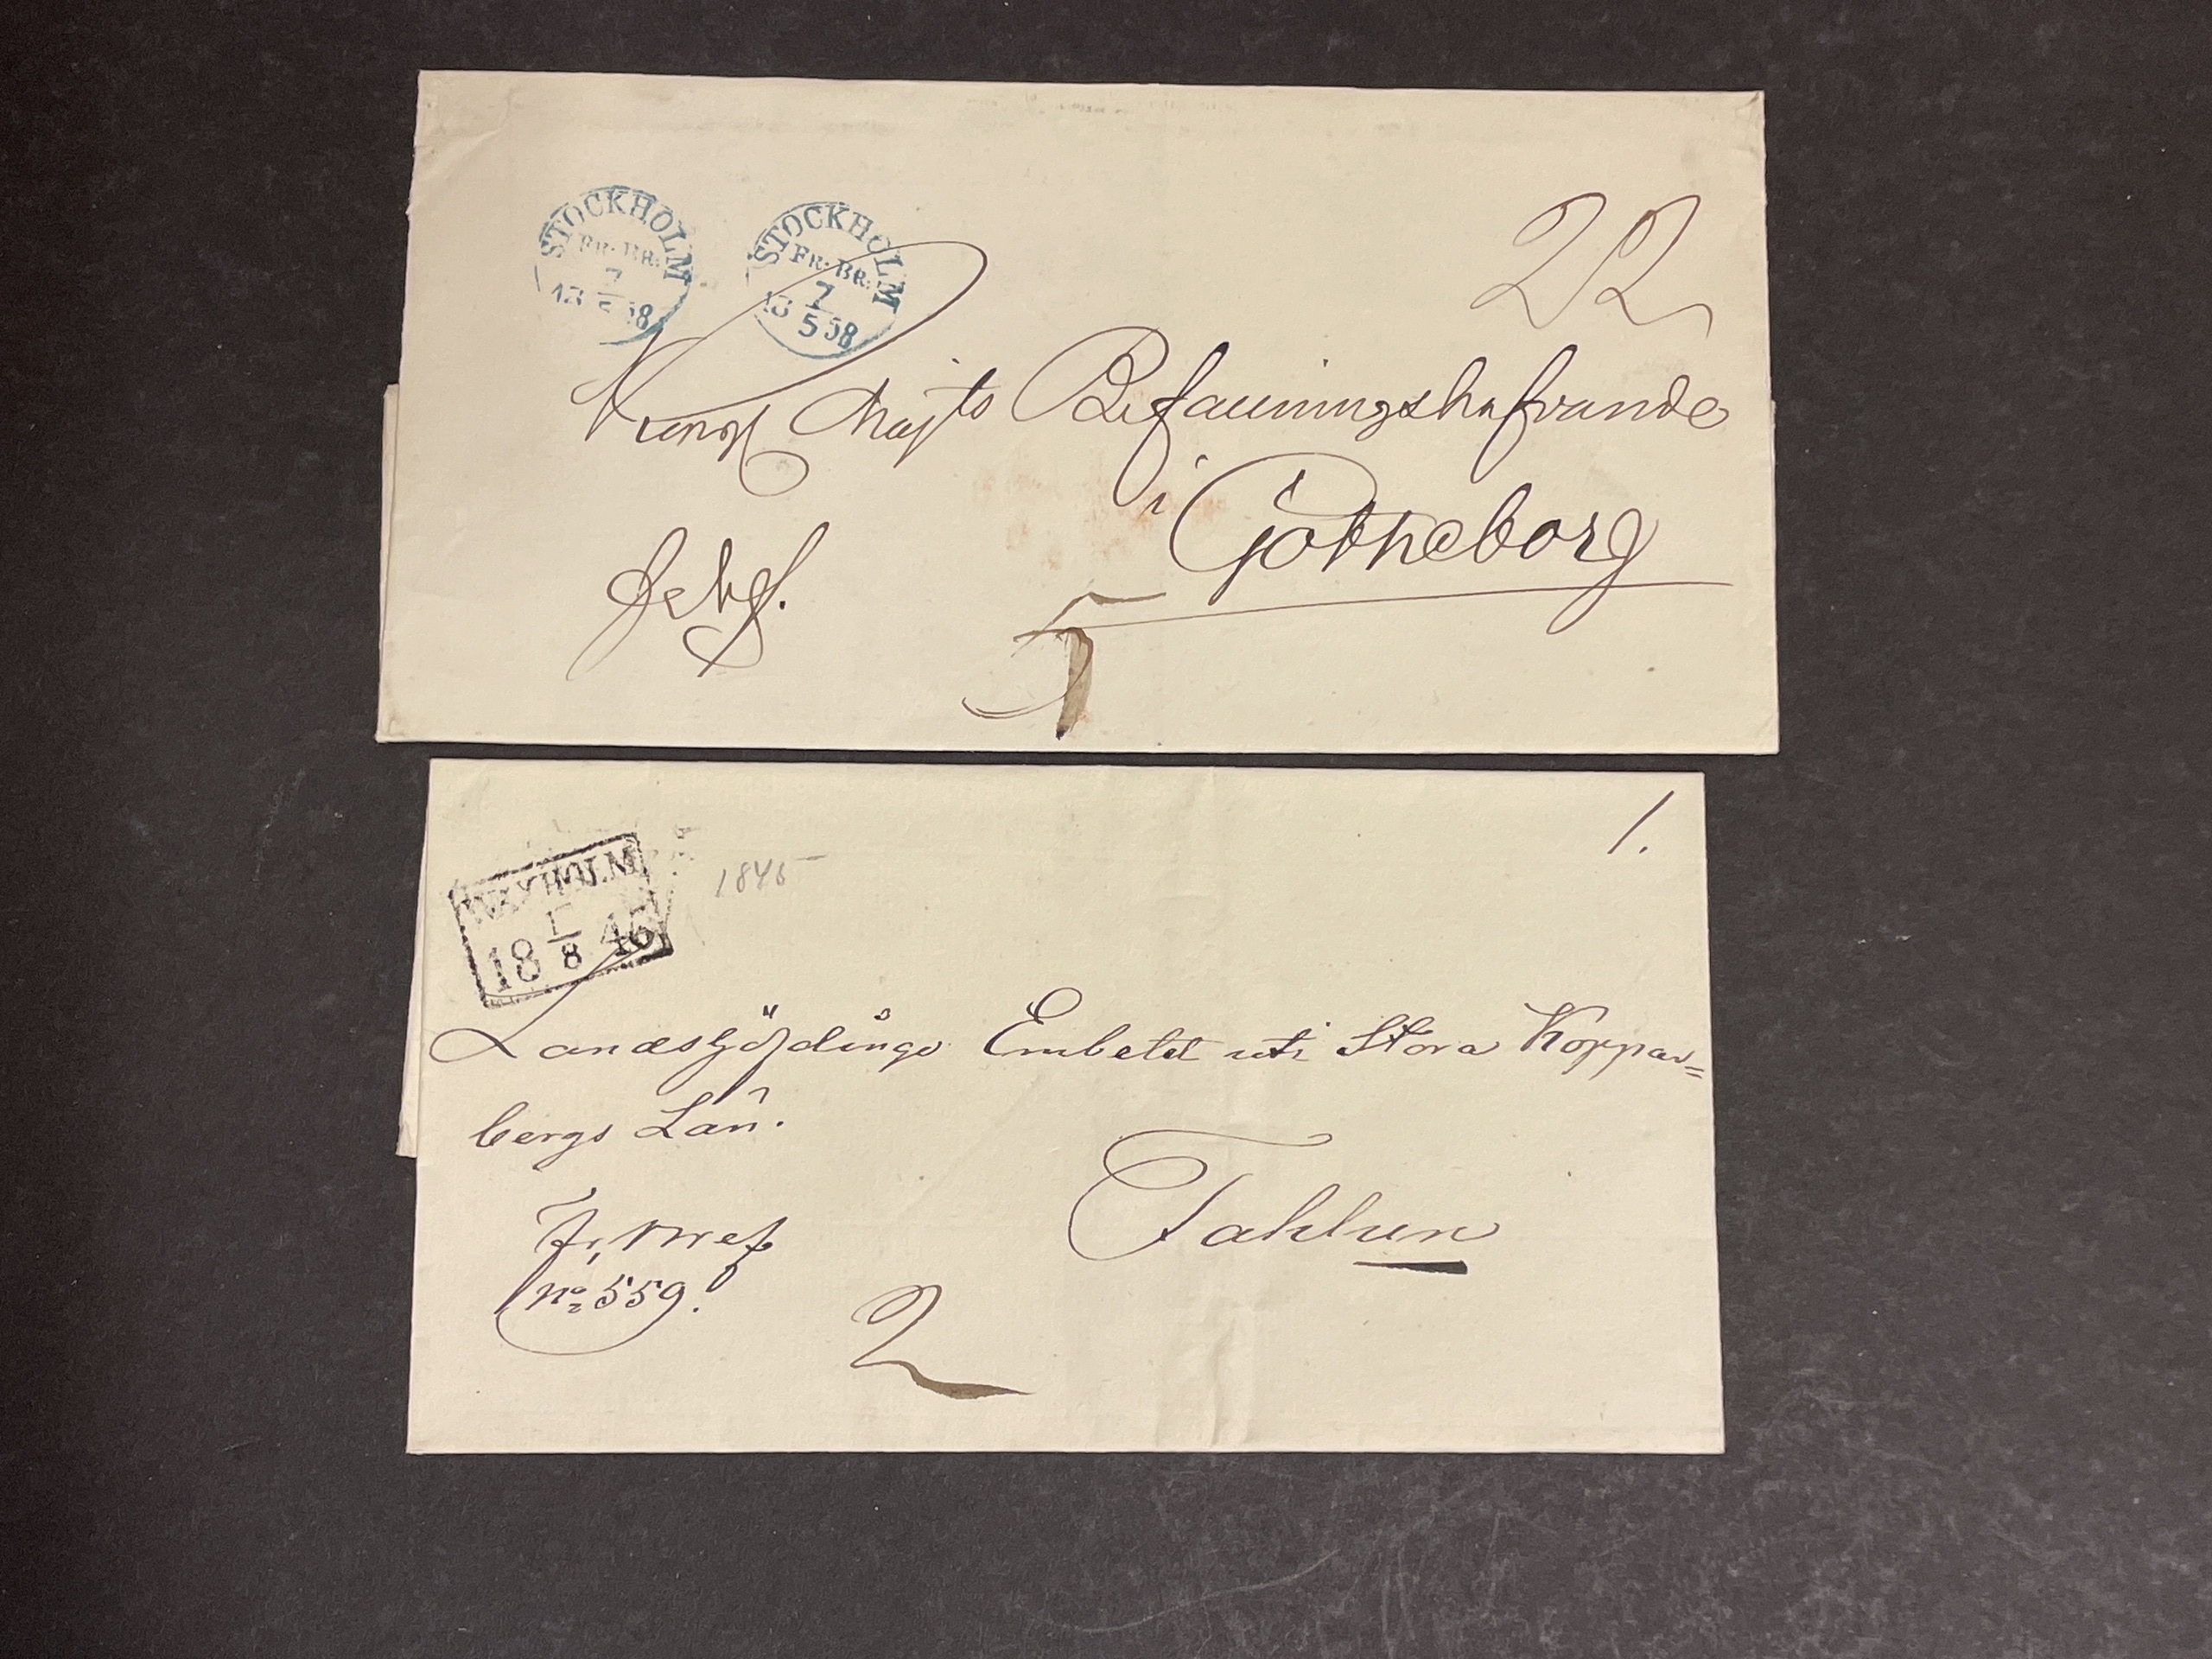 STOCKHOLM
FR. BR.
7
18 5 58
STOCKHOLM
FR. BR.
7
18 5 58
22
Kongl Majts Befallningshafvande
i Götheborg
5
1.
WAXHOLM
18 8 45
1845
Landshöfdinge Embetet uti Stora Koppar=
bergs Län.
Fahlun
Fr, Bref
No 559.
2